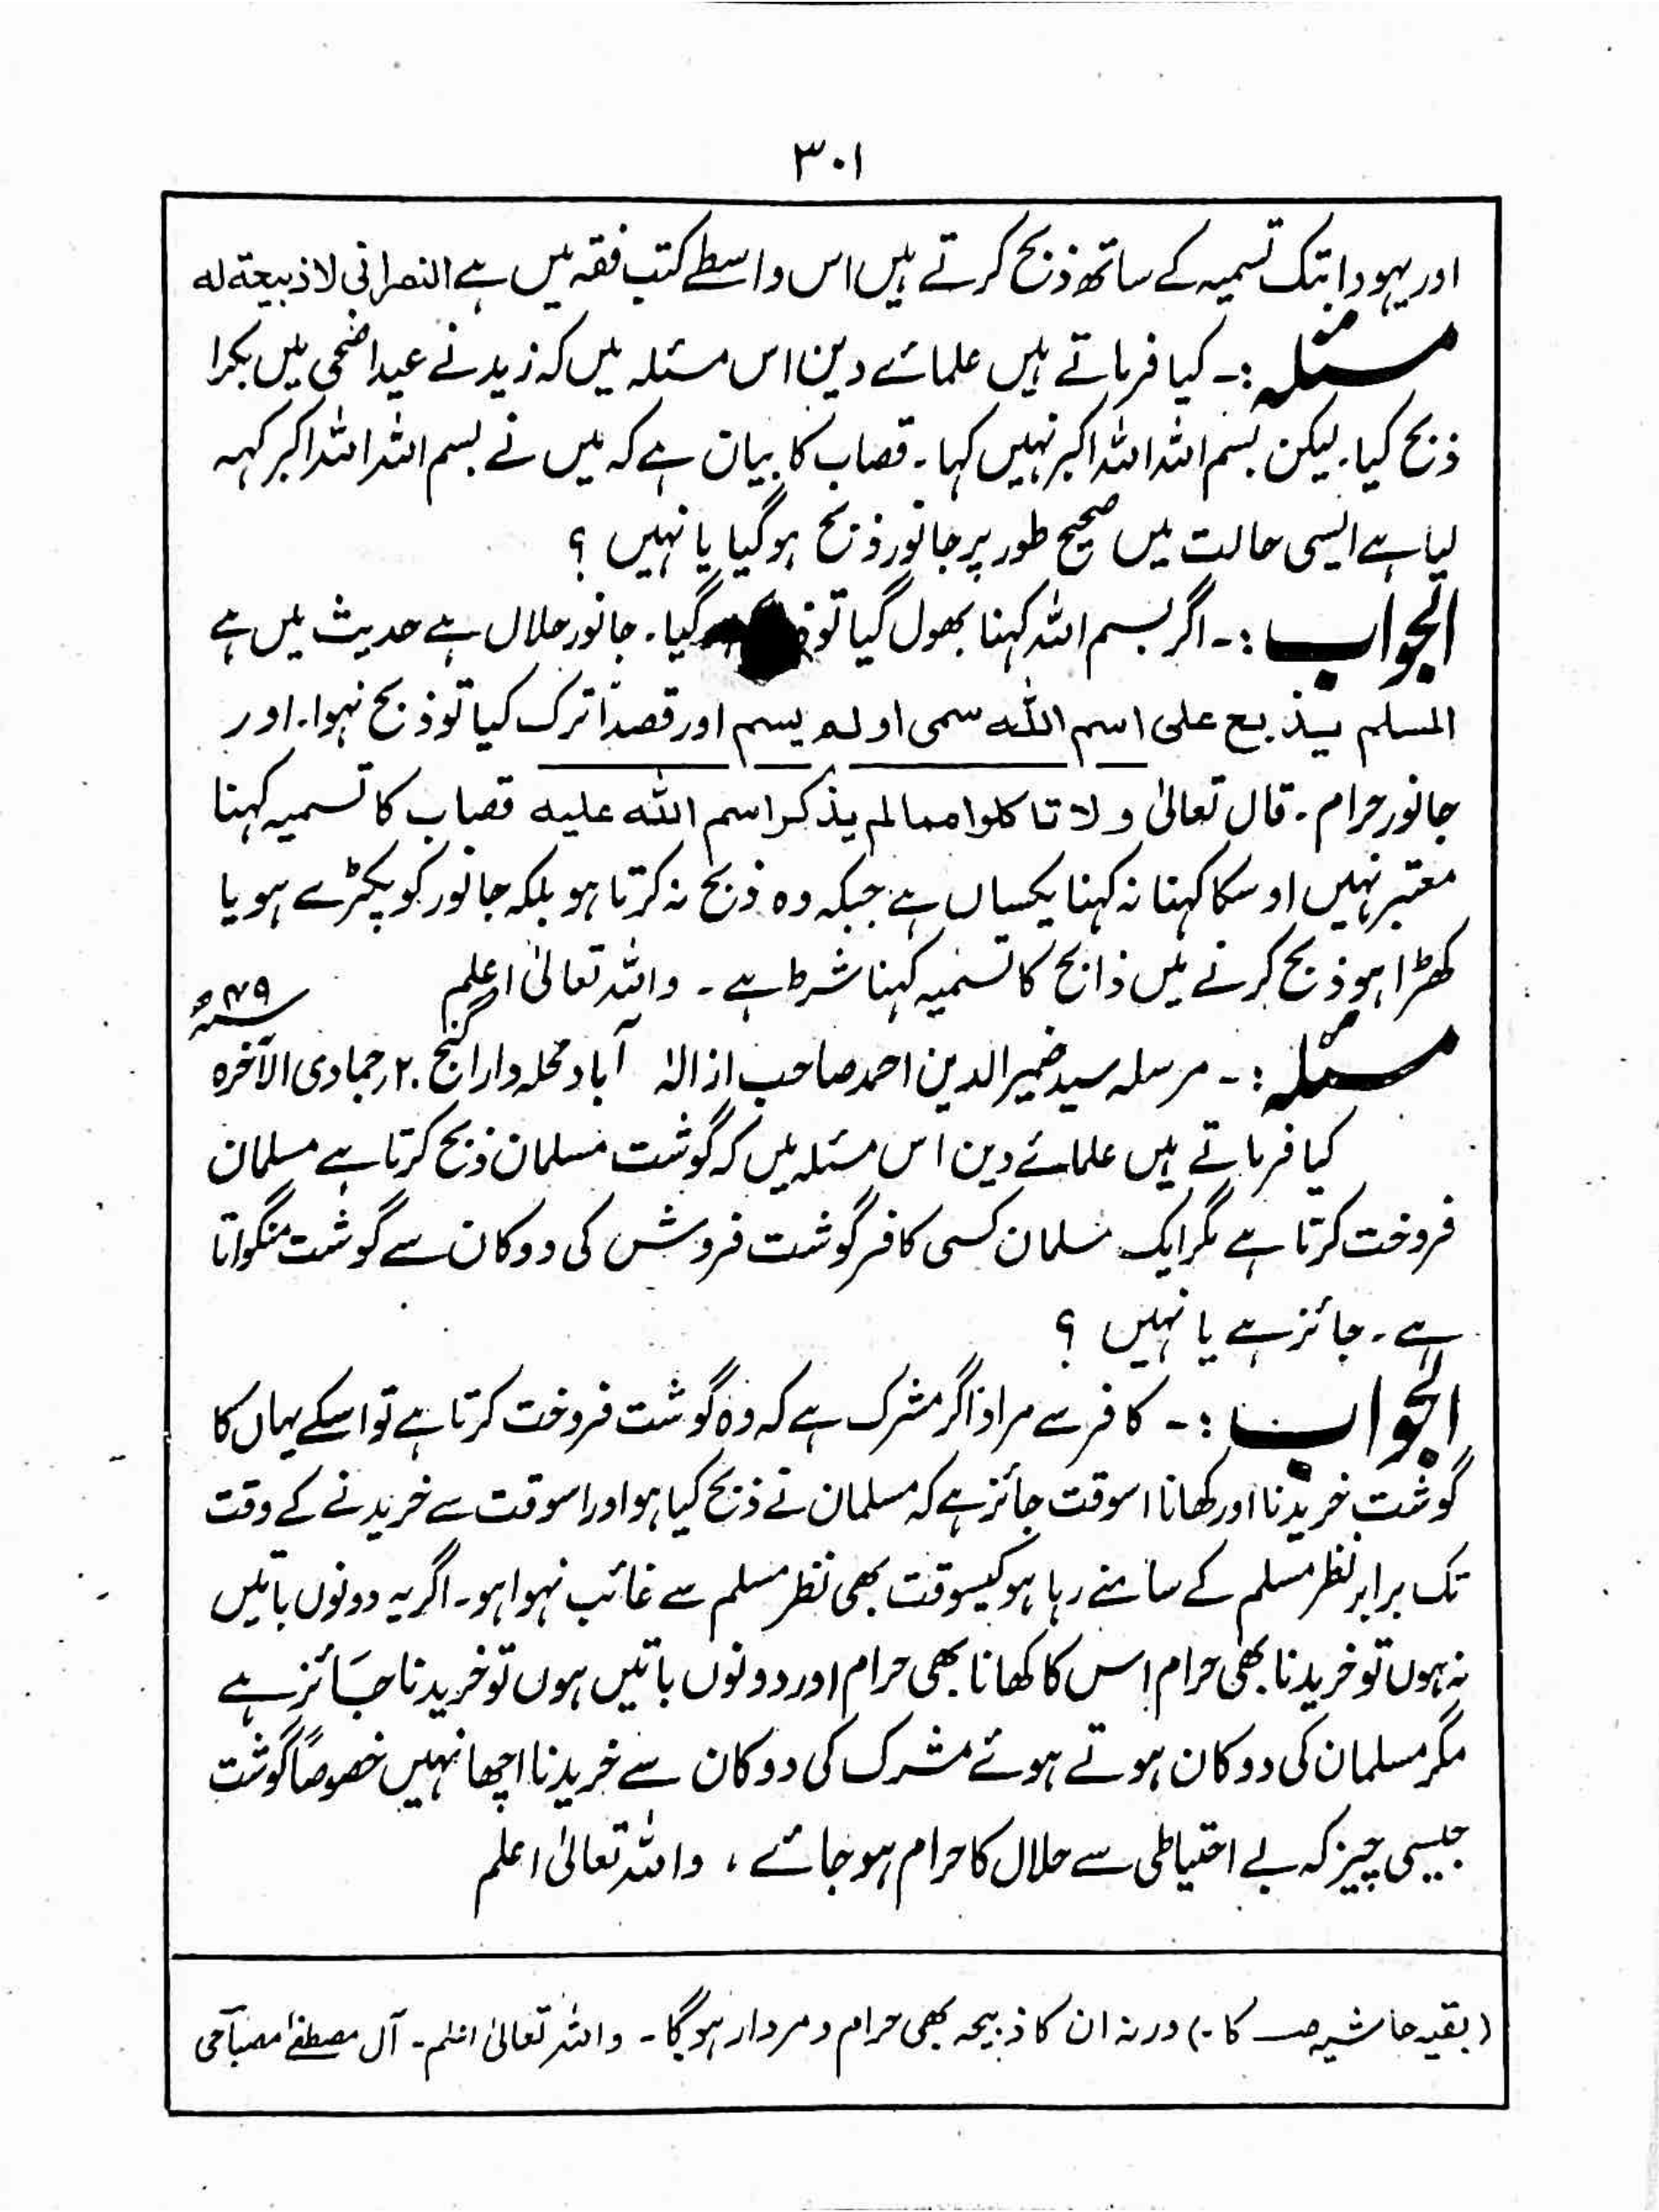 ۳۰۱
اور یہود ابتک تسمیہ کے ساتھ ذبح کرتے ہیں اس واسطے کتب فقہ میں ہے النصرانی لا ذبیحة له
مسئلہ :۔ کیا فرماتے ہیں علمائے دین اس مسئلہ میں کہ زید نے عید اضحی میں بکرا
ذبح کیا۔ لیکن بسم اللہ اللہ اکبر نہیں کہا۔ قصاب کا بیان ہے کہ میں نے بسم اللہ اللہ اکبر کہہ
لیا ہے ایسی حالت میں صحیح طور پر جانور ذبح ہو گیا یا نہیں ؟
الجواب :۔ اگر بسم اللہ کہنا بھول گیا تو گیا۔ جانور حلال ہے حدیث میں ہے
المسلم یذبح علی اسم اللہ سمی او لم یسم اور قصداً ترک کیا تو ذبح نہوا۔ اور
جانور حرام۔ قال تعالیٰ ولا تاکلوا مما لم یذکر اسم اللہ علیه قصاب کا تسمیہ کہنا
معتبر نہیں اوسکا کہنا نہ کہنا یکساں ہے جبکہ وہ ذبح نہ کرتا ہو بلکہ جانور کو پکڑے ہو یا
کھڑا ہو ذبح کرنے میں ذابح کا تسمیہ کہنا شرط ہے۔ واللہ تعالیٰ اعلم
مسئلہ :۔ مرسلہ سید ضمیر الدین احمد صاحب از الہٰ آباد محلہ دارا گنج ۲۰ جمادی الآخرہ ۴۹ھ
کیا فرماتے ہیں علمائے دین اس مسئلہ میں کہ گوشت مسلمان ذبح کرتا ہے مسلمان
فروخت کرتا ہے مگر ایک مسلمان کسی کافر گوشت فروش کی دوکان سے گوشت منگواتا
ہے۔ جائز ہے یا نہیں ؟
الجواب :۔ کافر سے مراد اگر مشرک ہے کہ وہ گوشت فروخت کرتا ہے تو اسکے یہاں کا
گوشت خریدنا اور کھانا اسوقت جائز ہے کہ مسلمان نے ذبح کیا ہو اور اسوقت سے خریدنے کے وقت
تک برابر نظر مسلم کے سامنے رہا ہو کیسوقت بھی نظر مسلم سے غائب نہوا ہو۔ اگر یہ دونوں باتیں
نہ ہوں تو خریدنا بھی حرام اس کا کھانا بھی حرام اور دونوں باتیں ہوں تو خریدنا جائز ہے
مگر مسلمان کی دوکان ہوتے ہوئے مشرک کی دوکان سے خریدنا اچھا نہیں خصوصاً گوشت
جیسی چیز کہ بے احتیاطی سے حلال کا حرام ہو جائے ، واللہ تعالیٰ اعلم
(بقیہ حاشیہ صـ کا۔) ورنہ ان کا ذبیحہ بھی حرام و مردار ہوگا۔ واللہ تعالیٰ اعلم۔ آل مصطفےٰ مصباحی